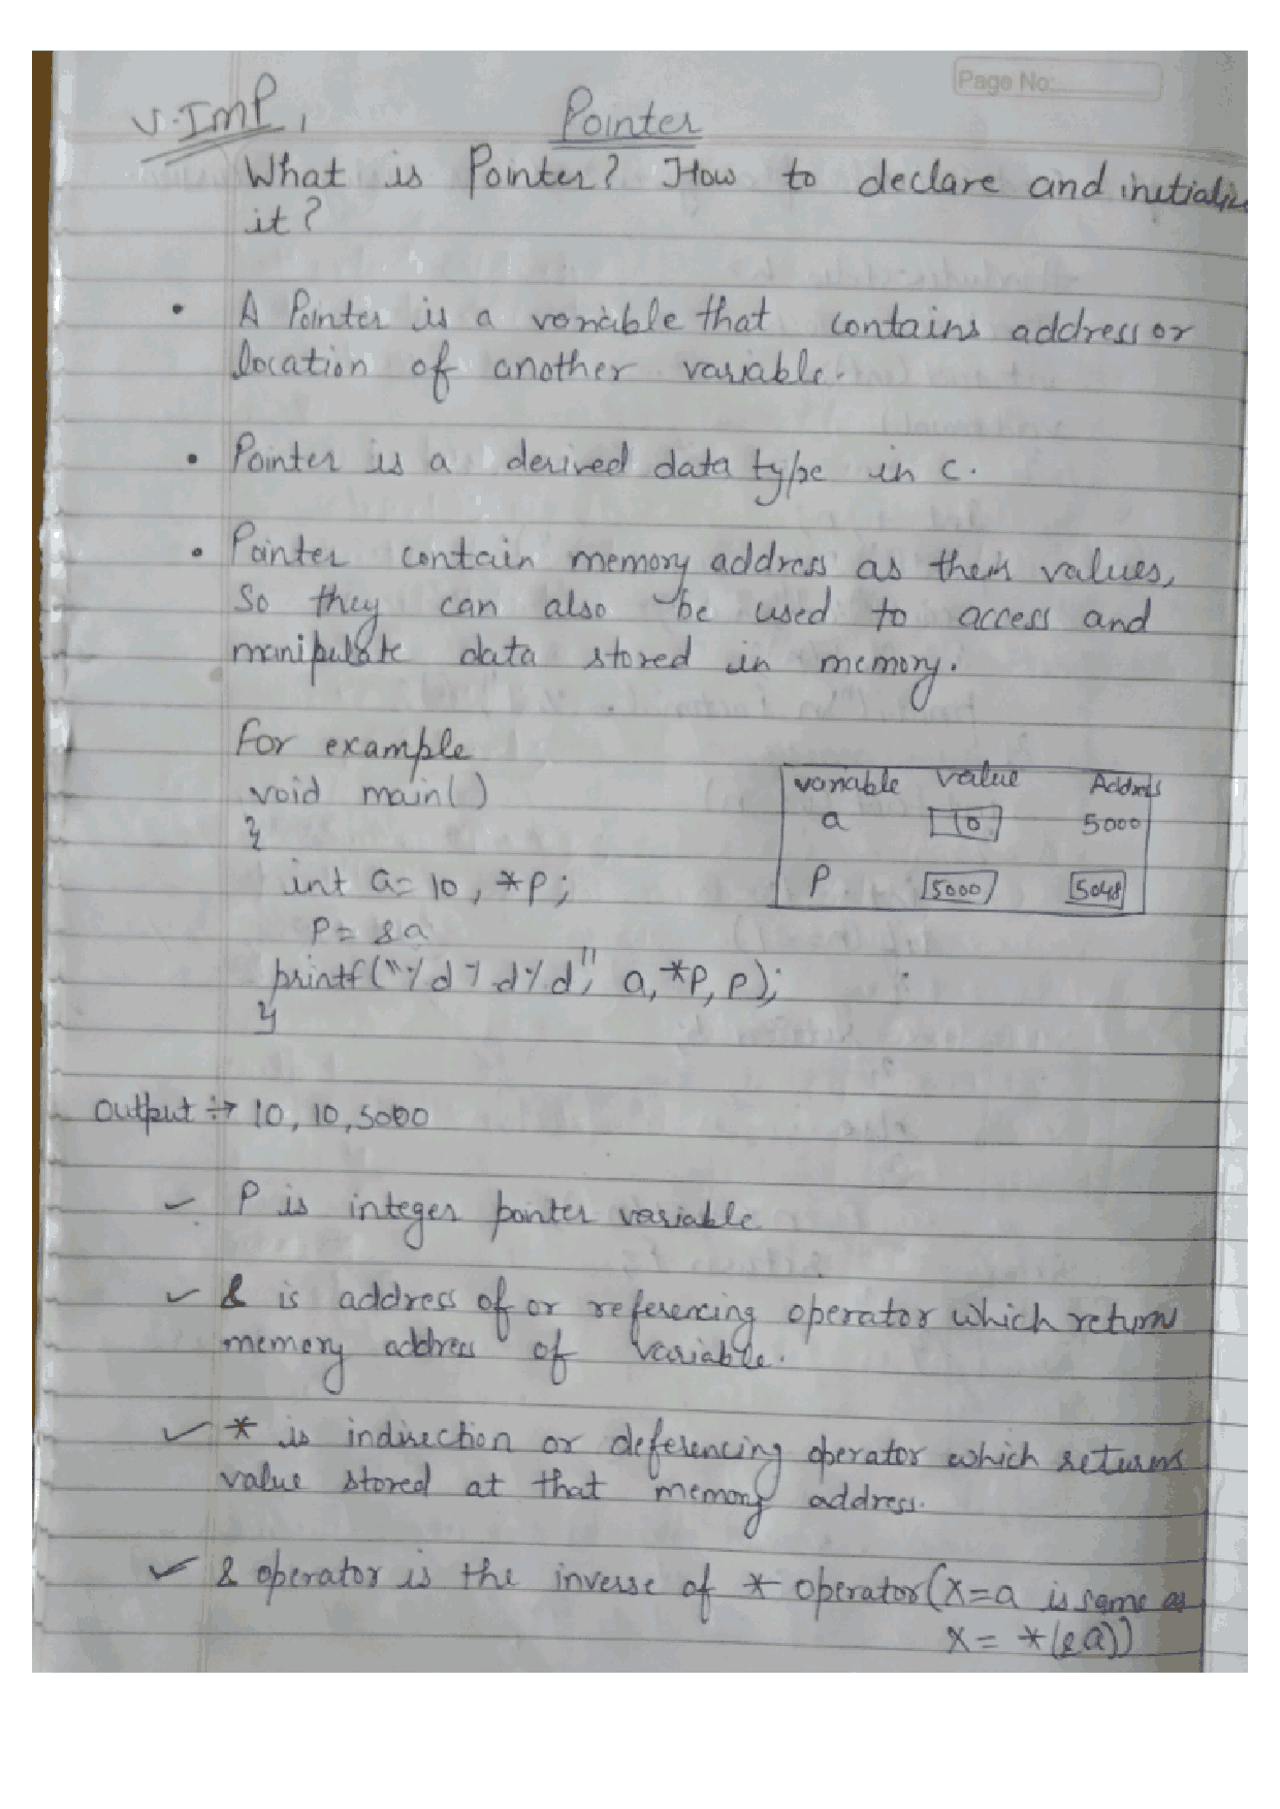 Page No:
V. Imp, Pointer
What is Pointer? How to declare and initialize
it?
• A Pointer is a variable that contains address or
location of another variable.
• Pointer is a derived data type in c.
• Pointer contain memory address as their values,
So they can also be used to access and
manipulate data stored in memory.
For example
void main()
{
int a=10, *p;
P= &a
printf("%d %d %d", a, *p, p);
}
variable value Address
a 10 5000
P 5000 5048
output → 10, 10, 5000
P is integer pointer variable
& is address of or referencing operator which return
memory address of variable.
* is indirection or deferencing operator which returns
value stored at that memory address.
& operator is the inverse of * operator (x=a is same as
x = *(&a))